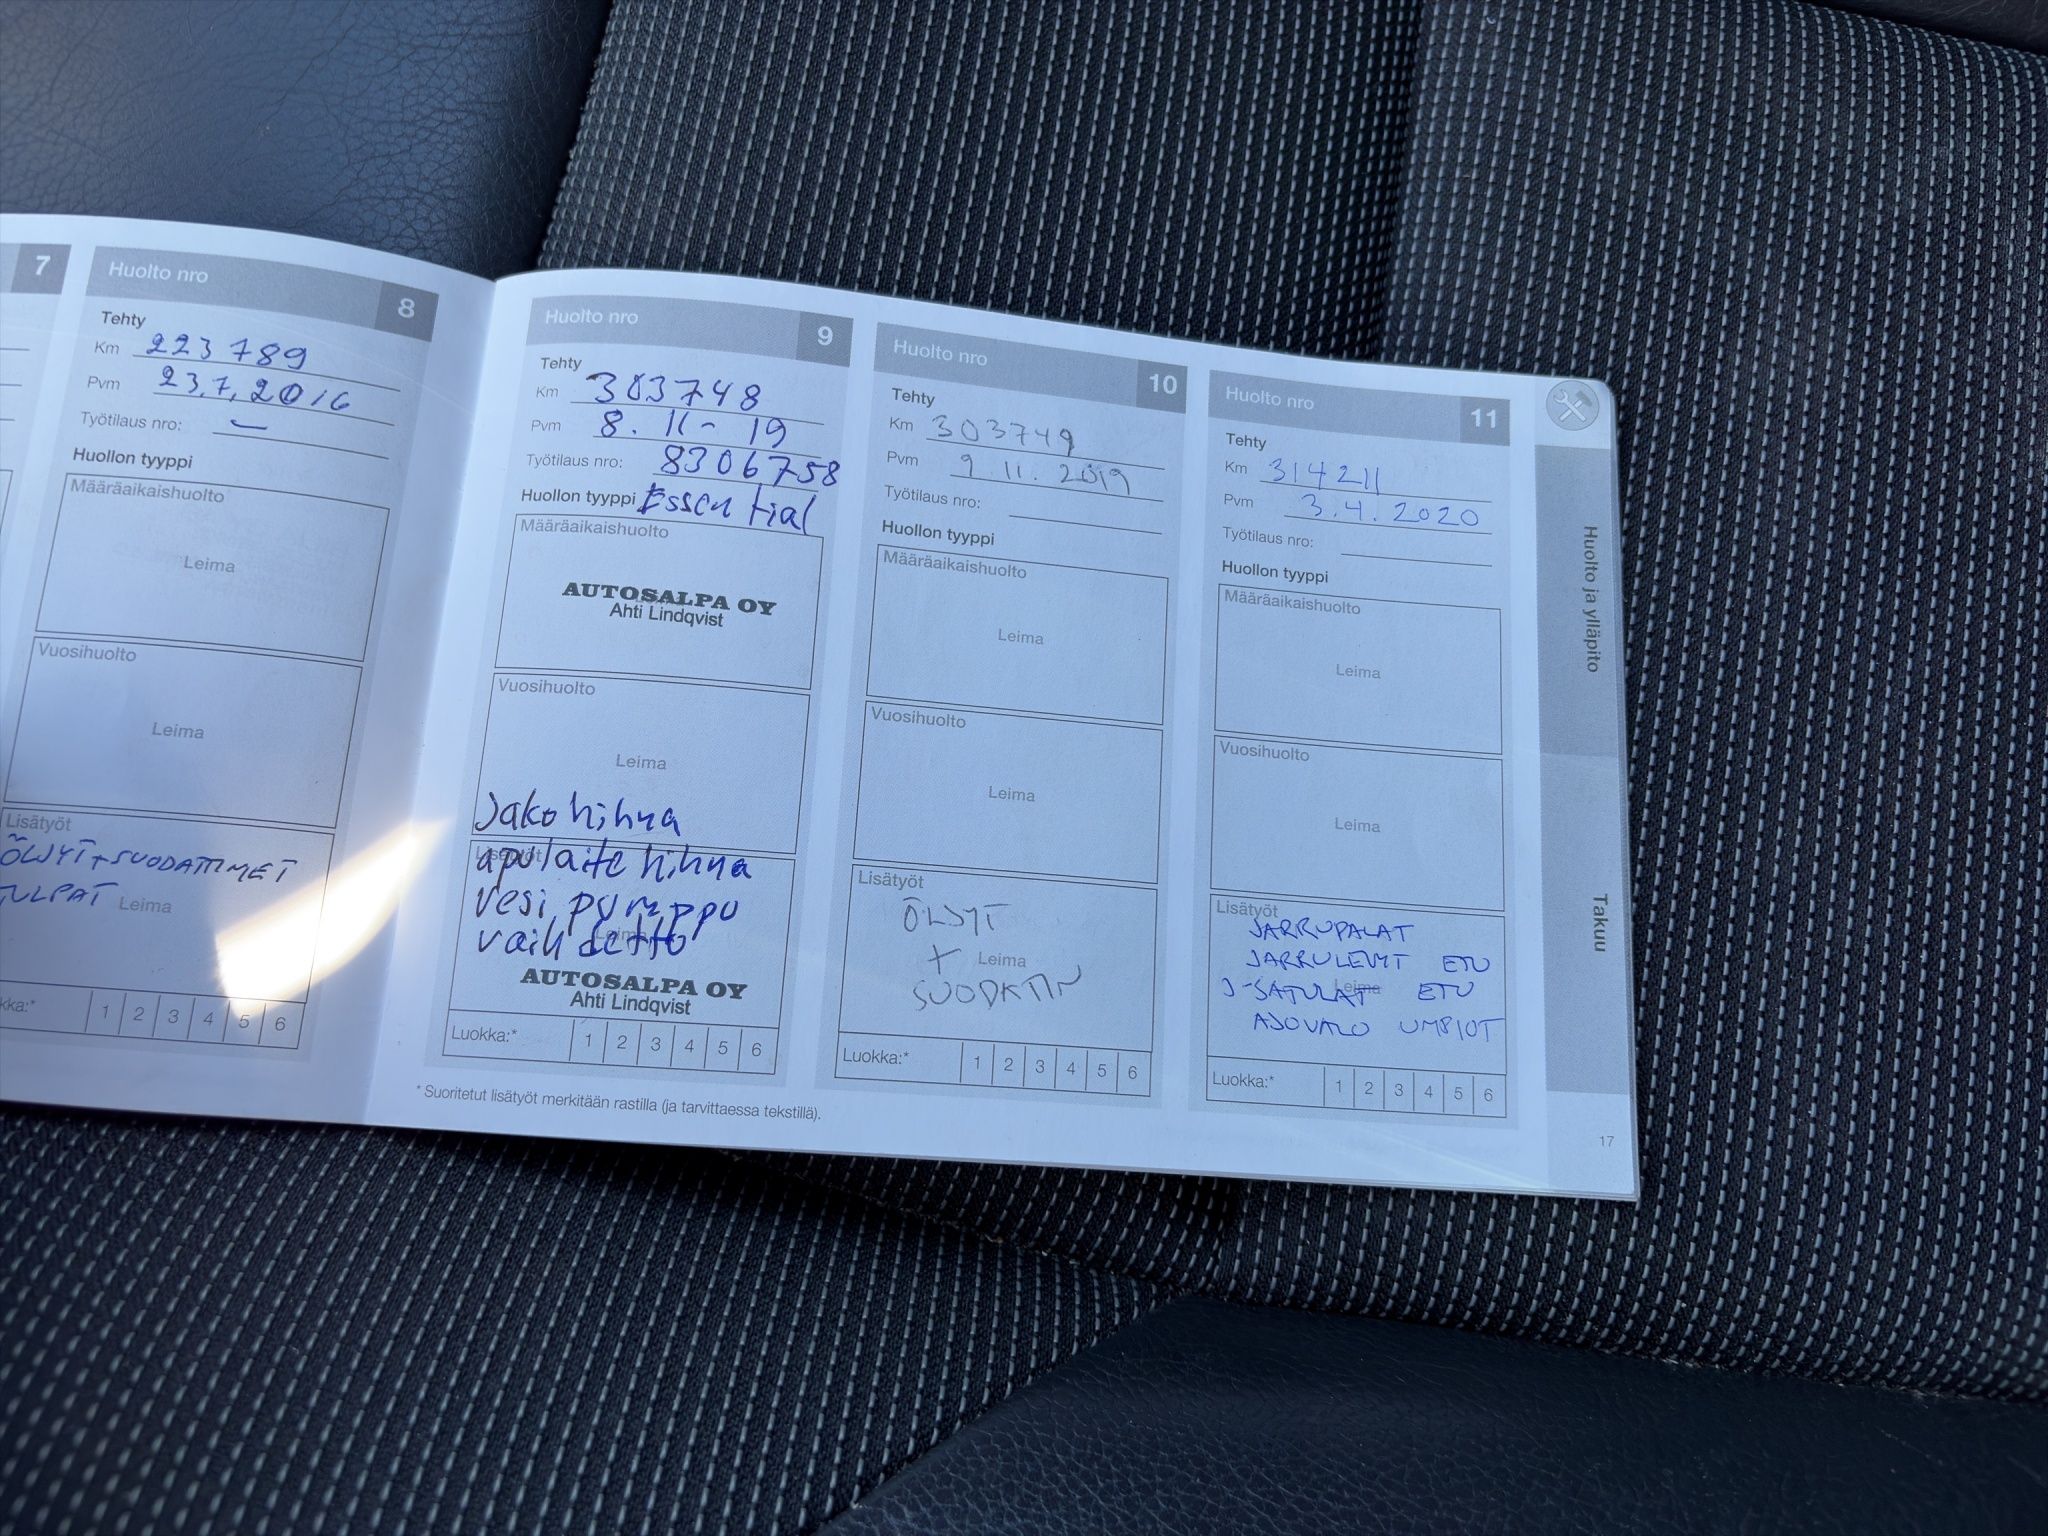 7
Huolto nro 8
Tehty
Km 223789
Pvm 23.7.2016
Työtilaus nro: –
Huollon tyyppi
Määräaikaishuolto
Leima
Vuosihuolto
Leima
Lisätyöt
ÖLJYT+SUODATTIMET
TULPAT Leima
kka:* 1 2 3 4 5 6
Huolto nro 9
Tehty
Km 303748
Pvm 8.11-19
Työtilaus nro: 8306758
Huollon tyyppi Essential
Määräaikaishuolto
AUTOSALPA OY
Ahti Lindqvist
Vuosihuolto
Leima
Jakohihna
Lisätyöt
apulaite hihna
vesi pumppu
Leima
vaihdettu
AUTOSALPA OY
Ahti Lindqvist
Luokka:* 1 2 3 4 5 6
Huolto nro 10
Tehty
Km 303749
Pvm 9.11.2019
Työtilaus nro:
Huollon tyyppi
Määräaikaishuolto
Leima
Vuosihuolto
Leima
Lisätyöt
ÖLJYT
+ Leima
SUODATIN
Luokka:* 1 2 3 4 5 6
Huolto nro 11
Tehty
Km 314211
Pvm 3.4.2020
Työtilaus nro:
Huollon tyyppi
Määräaikaishuolto
Leima
Vuosihuolto
Leima
Lisätyöt
JARRUPALAT
JARRULEVYT ETU
Leima
J-SATULAT ETU
AJOVALO UMPIOT
Luokka:* 1 2 3 4 5 6
* Suoritetut lisätyöt merkitään rastilla (ja tarvittaessa tekstillä).
Huolto ja ylläpito
Takuu
17